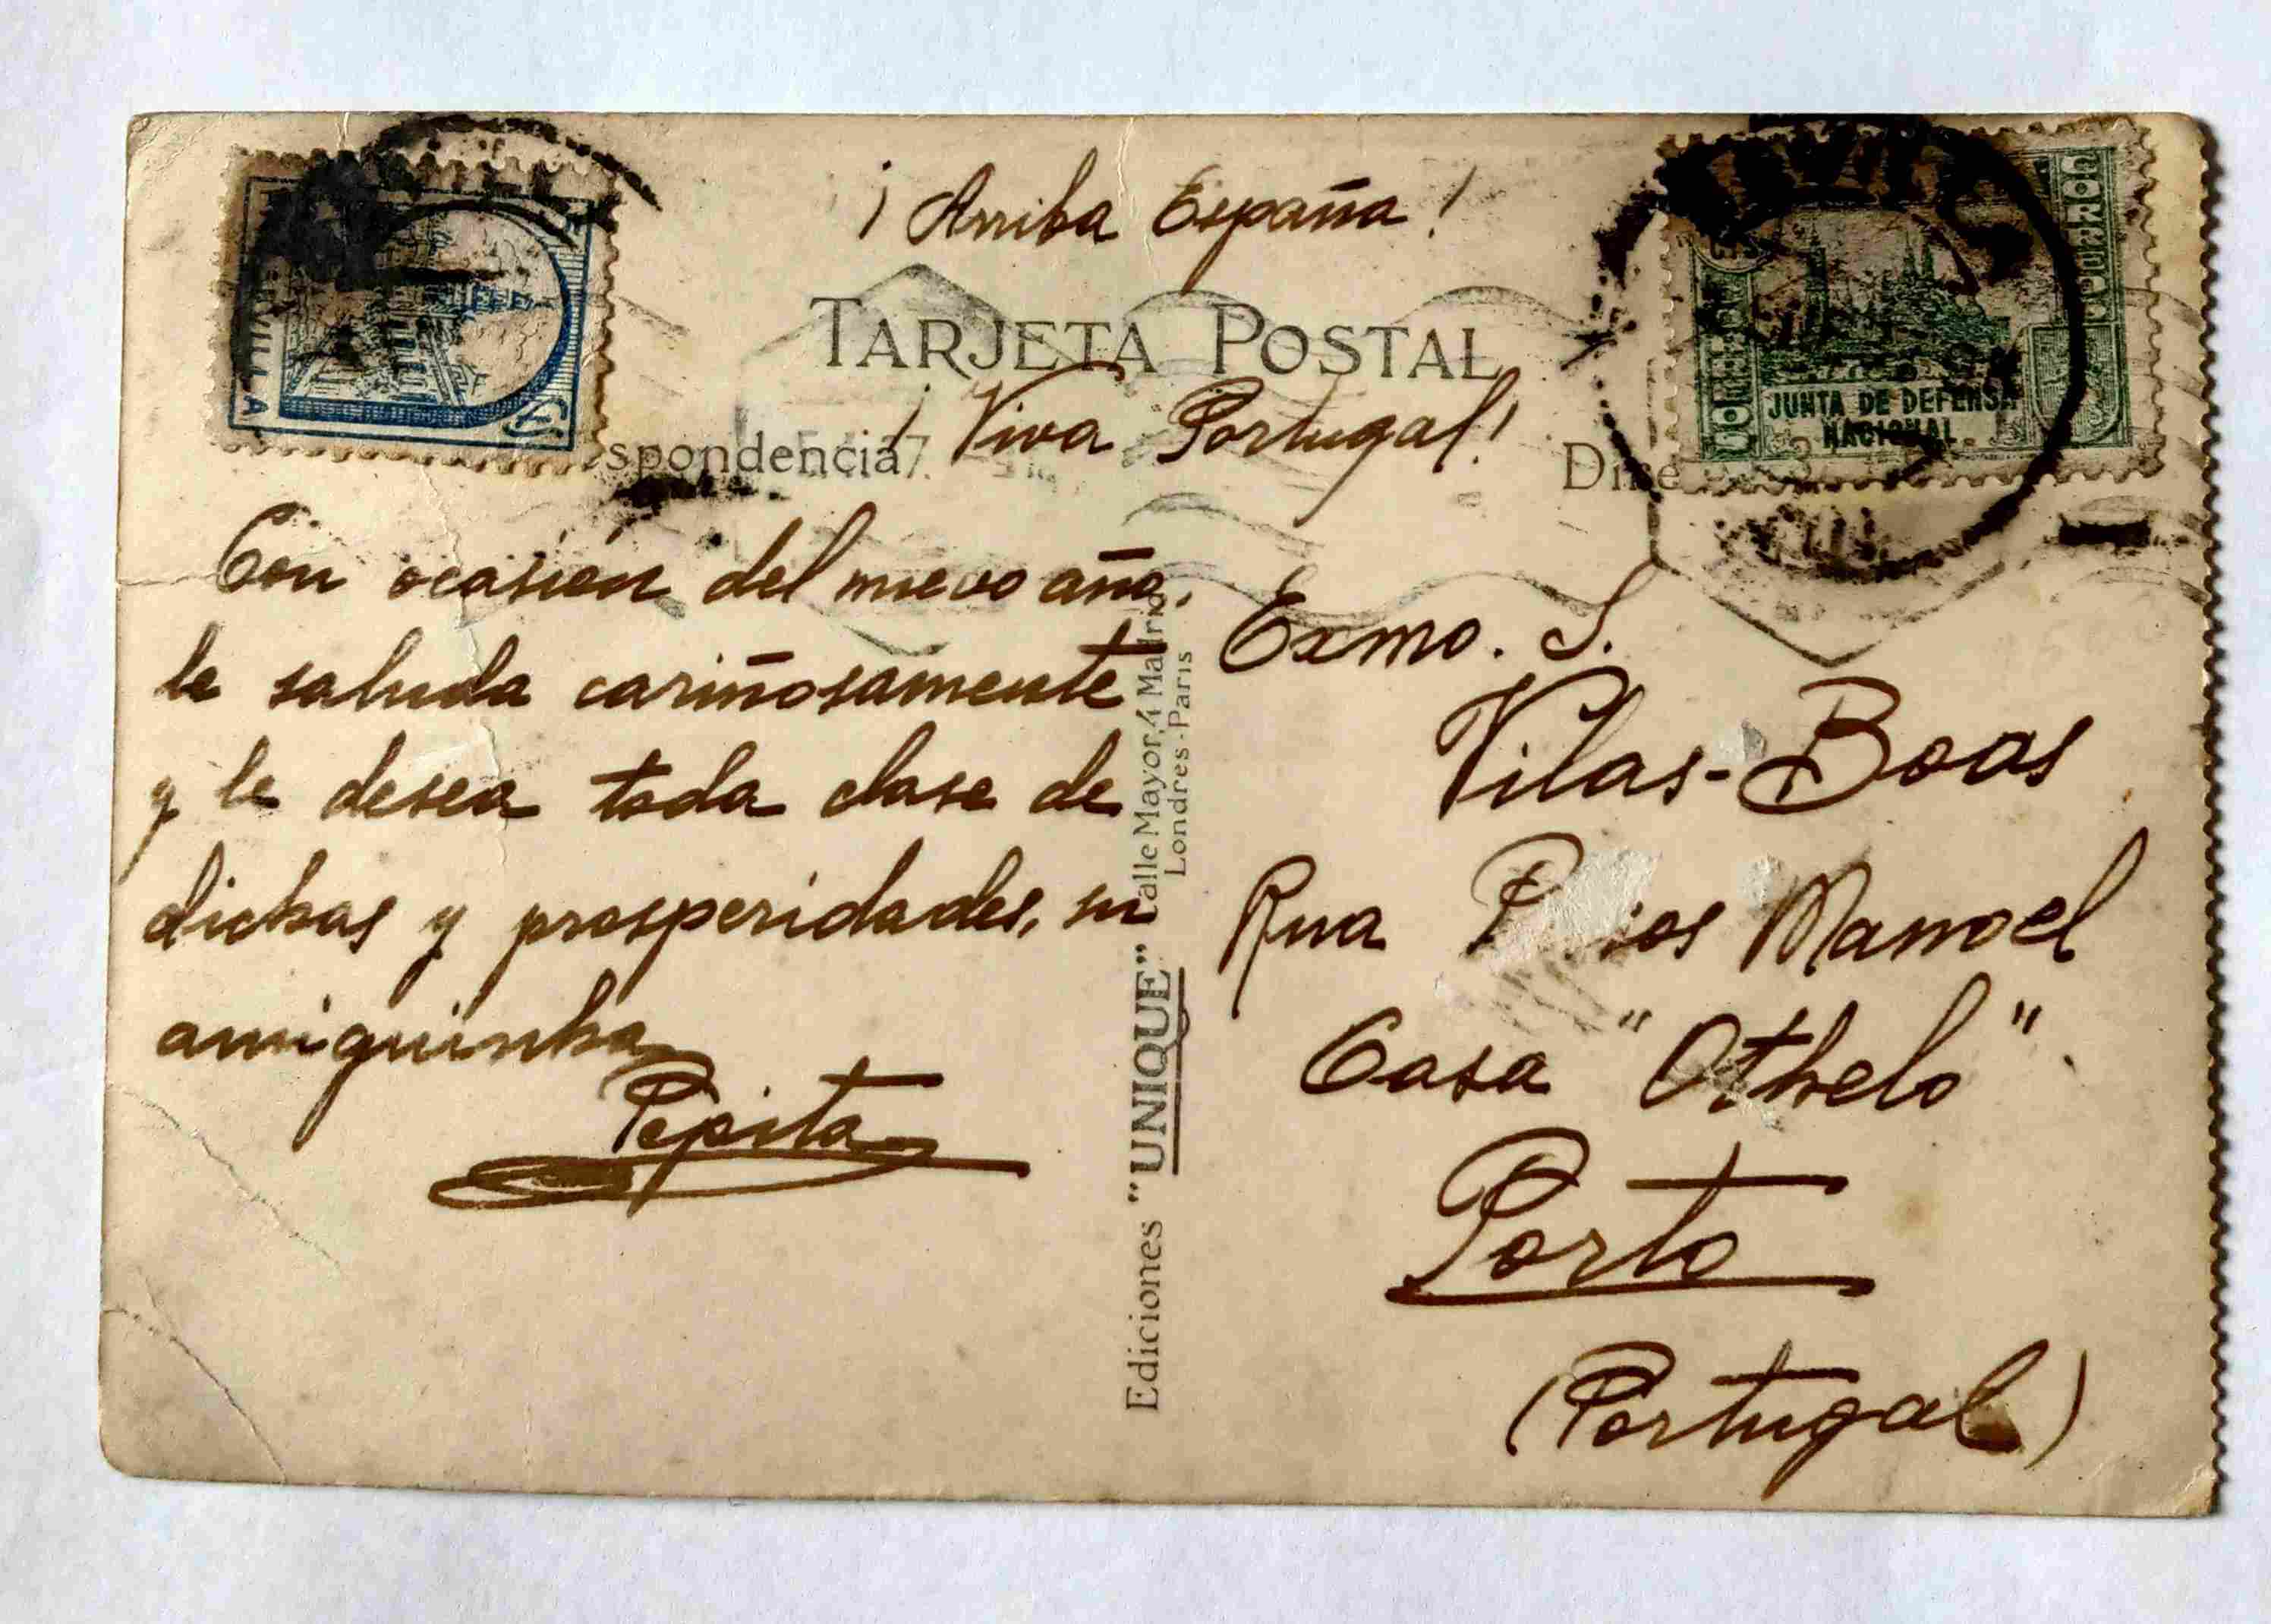 ¡ Arriba España !
TARJETA POSTAL
¡ Viva Portugal !
spondencia
Dire
SEVILLA
CORREOS
JUNTA DE DEFENSA
NACIONAL
Con ocasión del nuevo año,
le saluda cariñosamente
y le desea toda clase de
dichas y prosperidades, su
amiguinha
Pepita
Ediciones "UNIQUE" Calle Mayor, 4 Madrid
Londres-Paris
Exmo. S.
Vilas-Boas
Rua Manoel
Casa "Othelo"
Porto
(Portugal)